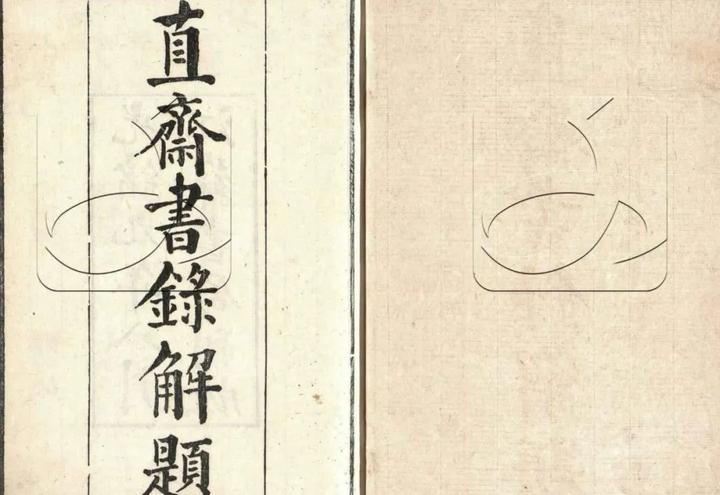 直齋書錄解題